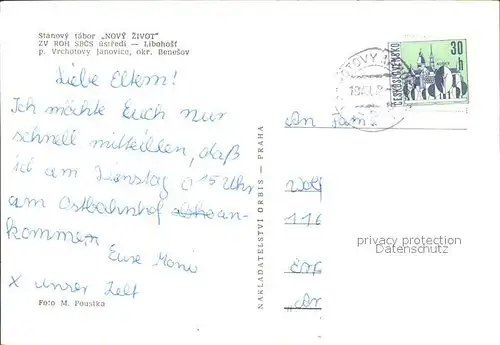 Stanový tábor „NOVÝ ŽIVOT"
ZV ROH SBČS ústředí — Libohošť
p. Vrchotovy Janovice, okr. Benešov
Liebe Eltern!
Ich möchte Euch nur
schnell mitteillen, daß
ich am Dienstag 0 15 Uhr
am Ostbahnhof an-
kommen
Eure Moni
x unser Zelt
Foto M. Poustka
NAKLADATELSTVÍ ORBIS — PRAHA
ČESKOSLOVENSKO
30
h
An Fam
116
privacy protection
Datenschutz